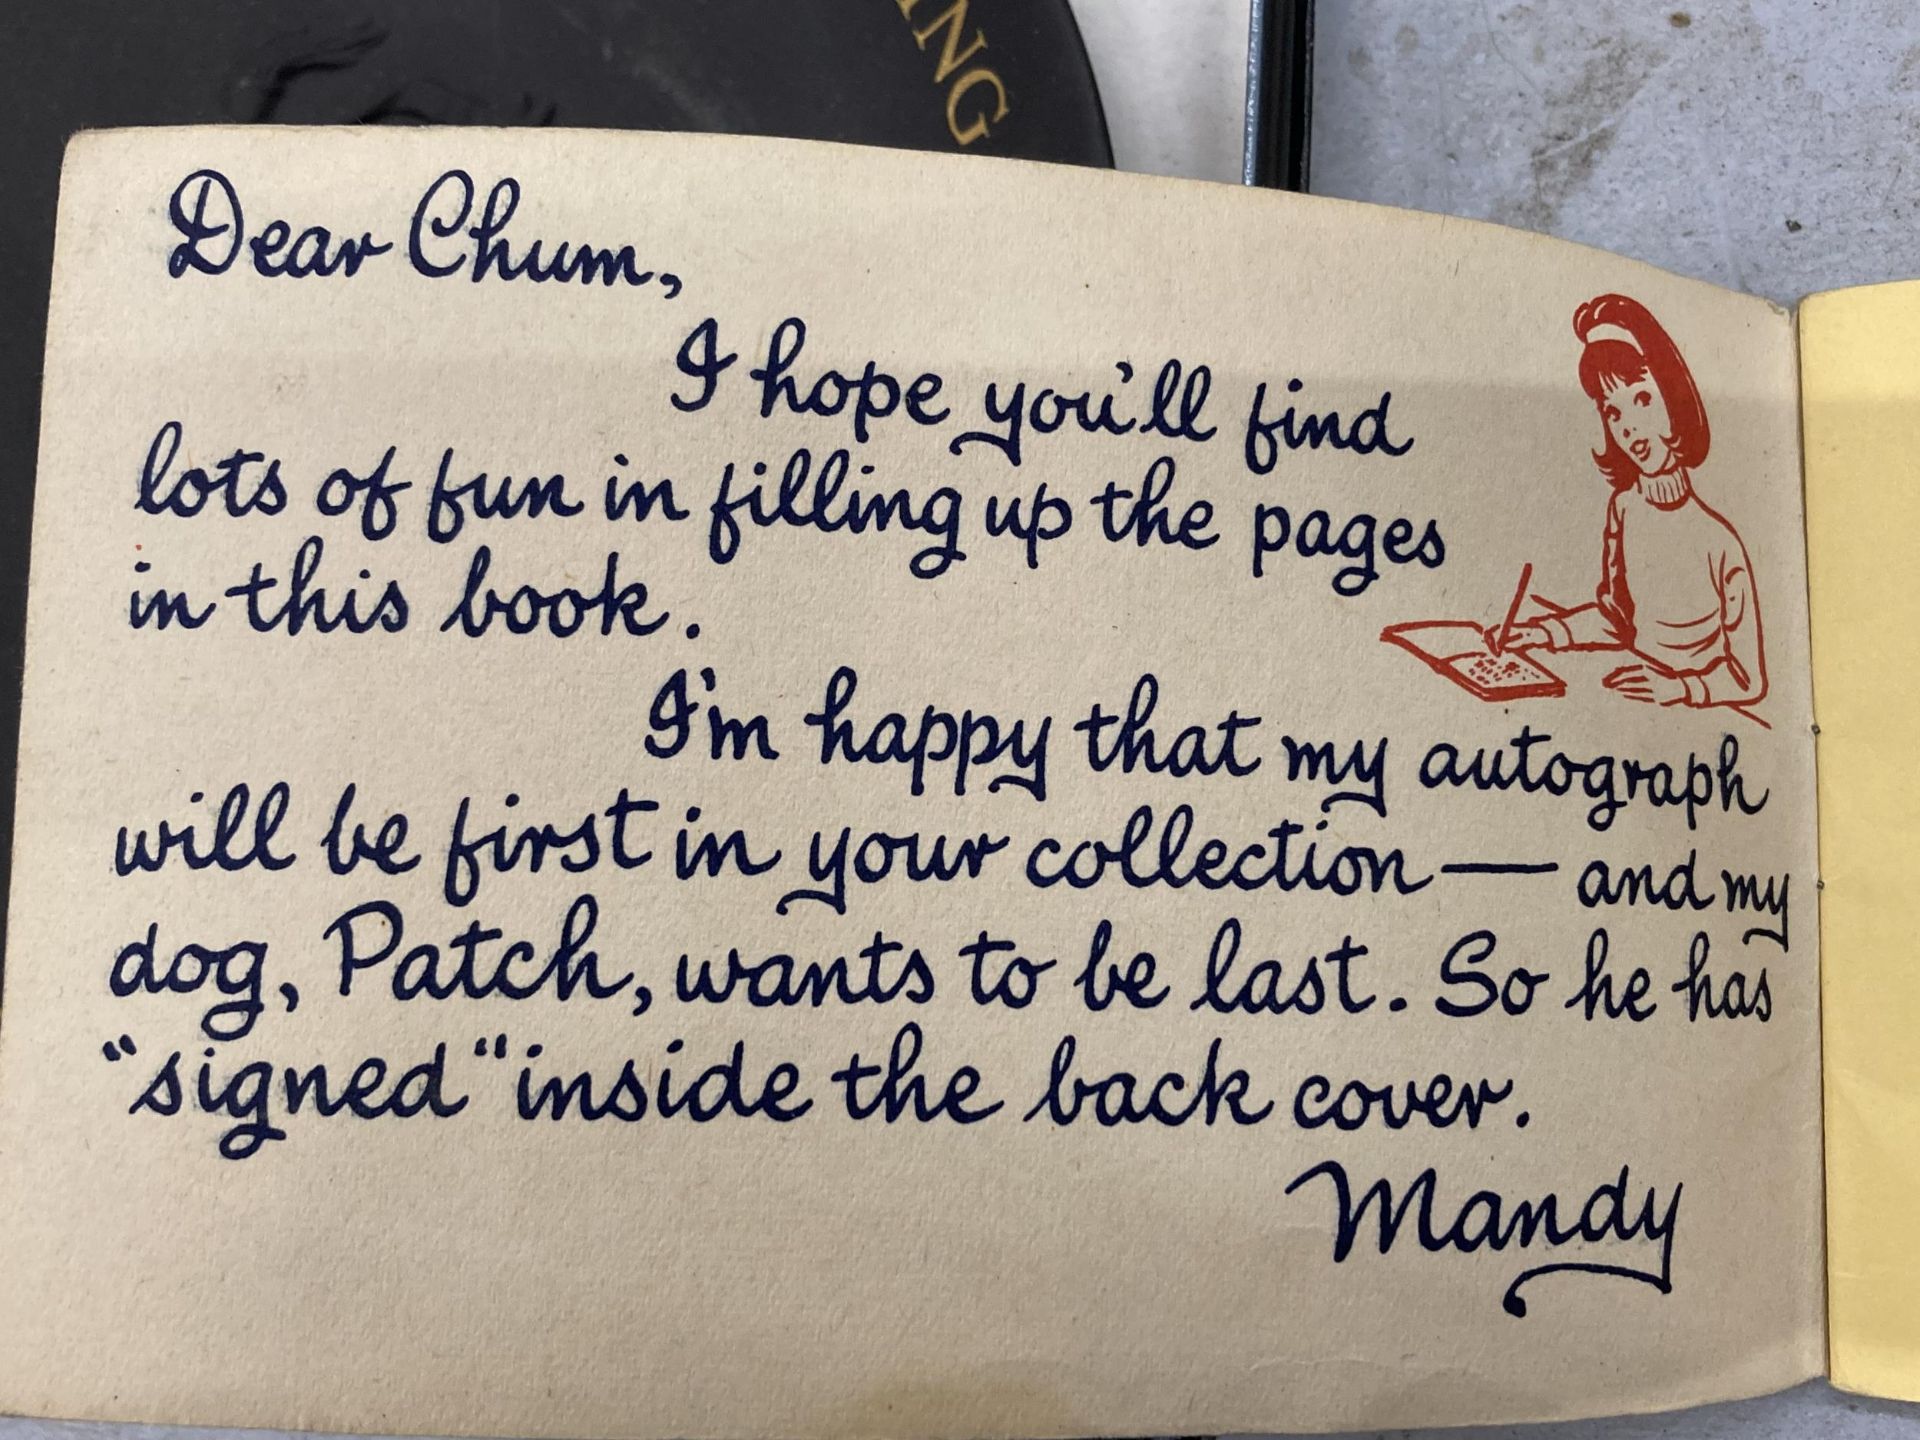 ING
Dear Chum,
I hope you'll find
lots of fun in filling up the pages
in this book.
I'm happy that my autograph
will be first in your collection — and my
dog, Patch, wants to be last. So he has
"signed" inside the back cover.
Mandy